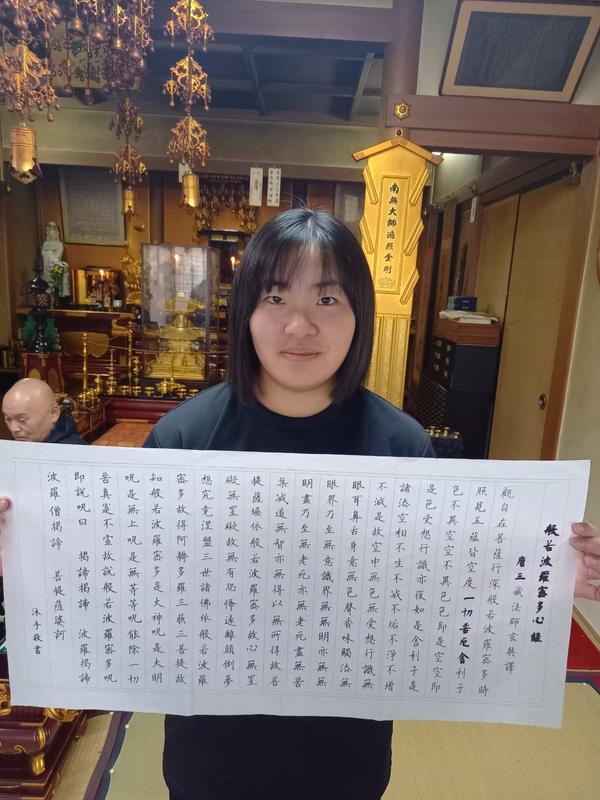 南無大師遍照金剛
般若波羅蜜多心經
唐三藏法師玄奘譯
觀自在菩薩行深般若波羅蜜多時
照見五蘊皆空度一切苦厄舍利子
色不異空空不異色色即是空空即
是色受想行識亦復如是舍利子是
諸法空相不生不滅不垢不淨不增
不減是故空中無色無受想行識無
眼耳鼻舌身意無色聲香味觸法無
眼界乃至無意識界無無明亦無無
明盡乃至無老死亦無老死盡無苦
集滅道無智亦無得以無所得故菩
提薩埵依般若波羅蜜多故心無罣
礙無罣礙故無有恐怖遠離顛倒夢
想究竟涅盤三世諸佛依般若波羅
蜜多故得阿耨多羅三藐三菩提故
知般若波羅蜜多是大神呪是大明
呪是無上呪是無等等呪能除一切
苦真實不虛故說般若波羅蜜多呪
即說呪曰 揭諦揭諦 波羅揭諦
波羅僧揭諦 菩提薩婆訶
沐手敬書